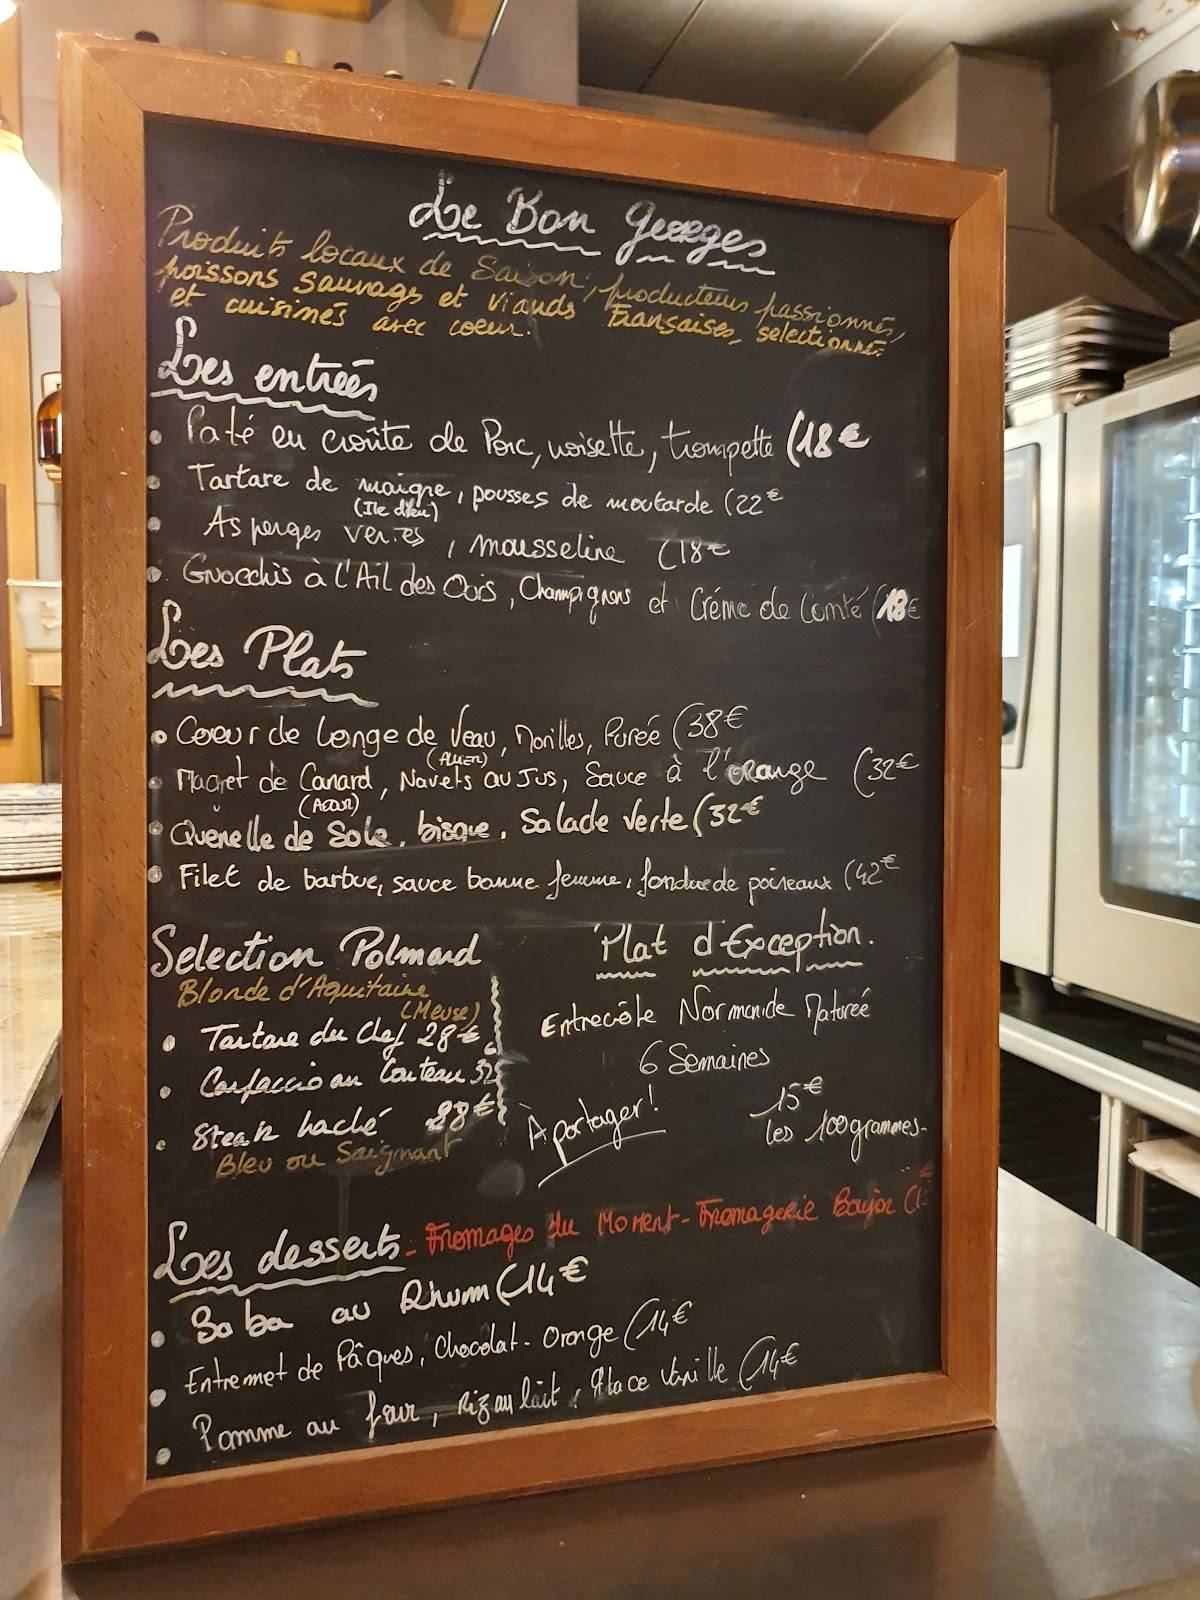 Le Bon Georges
Produits locaux de Saison, producteurs passionnés,
poissons sauvags et viands Françaises, selectionnés
et cuisinés avec coeur.
Les entreés
• Paté en croûte de Porc, noisette, trompette (18€
• Tartare de maigre, pousses de moutarde (22€
(Ile d'Yeu)
• Asperges vertes, mousseline (18€
• Gnocchis à l'Ail des Ours, Champignons et Créme de Comté (18€
Les Plats
• Coeur de Longe de Veau, Morilles, Pureé (38€
• Magret de Canard, Navets au Jus, Sauce à l'orange (32€
• Quenelle de Sole, bisque, Salade Verte (32€
• Filet de barbue, sauce bonne femme, fondue de poireaux (42€
Selection Polmard
Blonde d'Aquitaine
(Meuse)
• Tartare du Chef 28€
• Carpaccio au Couteau 32€
• Steak haché 28€
Bleu ou Saignant
Plat d'Exception.
Entrecôte Normande Matureé
6 Semaines
À partager!
15€
les 100grammes-
Les desserts - Fromages du Moment - Fromagerie
• Baba au Rhum (14€
• Entremet de Pâques, Chocolat - Orange (14€
• Pomme au four, Riz au lait, Glace Vanille (14€